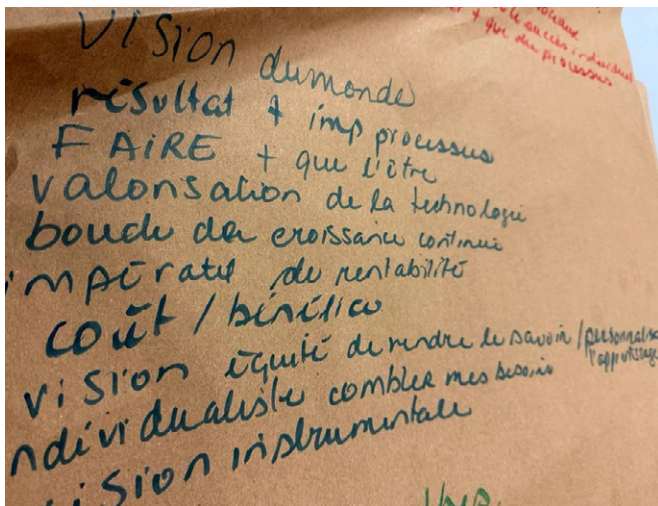 VISion du monde
résultat + imp processus
FAIRE + que l'être
valorisation de la technologie
boucle de croissance continue
impératif de rentabilité
coût / bénéfice
vision équité de rendre le savoir / personnalise
l'apprentissage
ndividualiste combler mes besoins
vision instrumentale
succès individuel
+ que du processus